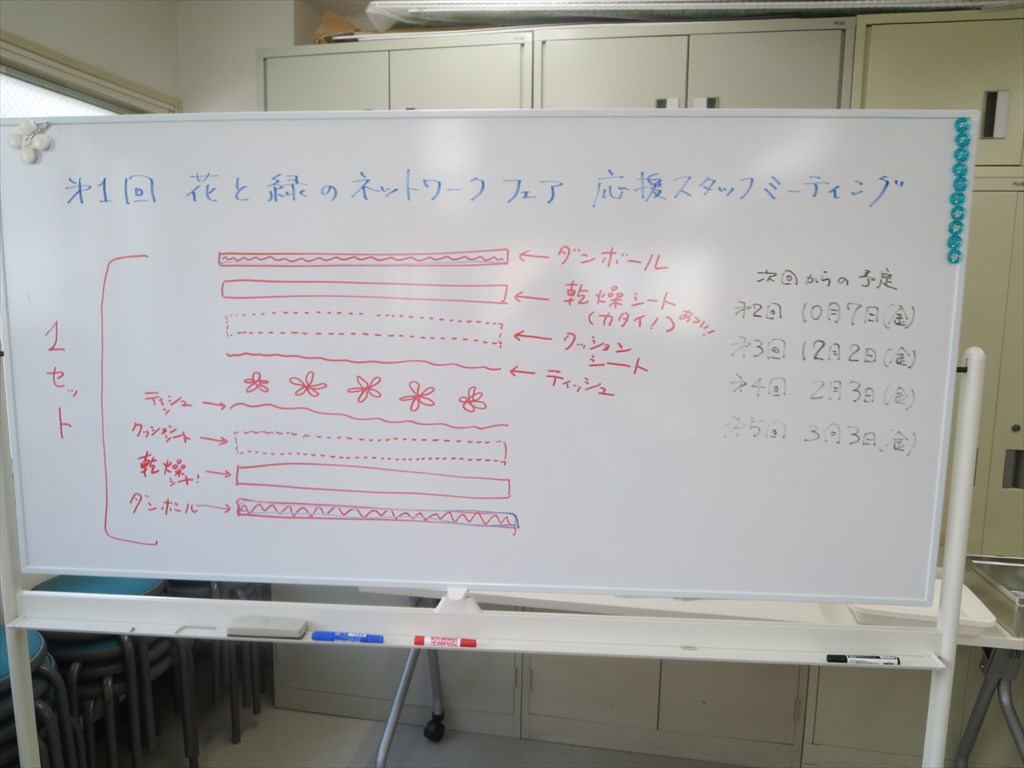 第1回 花と緑のネットワークフェア 応援スタッフミーティング
1セット
ダンボール
乾燥シート
(カタイ!)
クッション
シート
ティッシュ
ティッシュ
クッション
シート
乾燥
シート!
ダンボール
次回からの予定
第2回 10月7日(金)
第3回 12月2日(金)
第4回 2月3日(金)
第5回 3月3日(金)